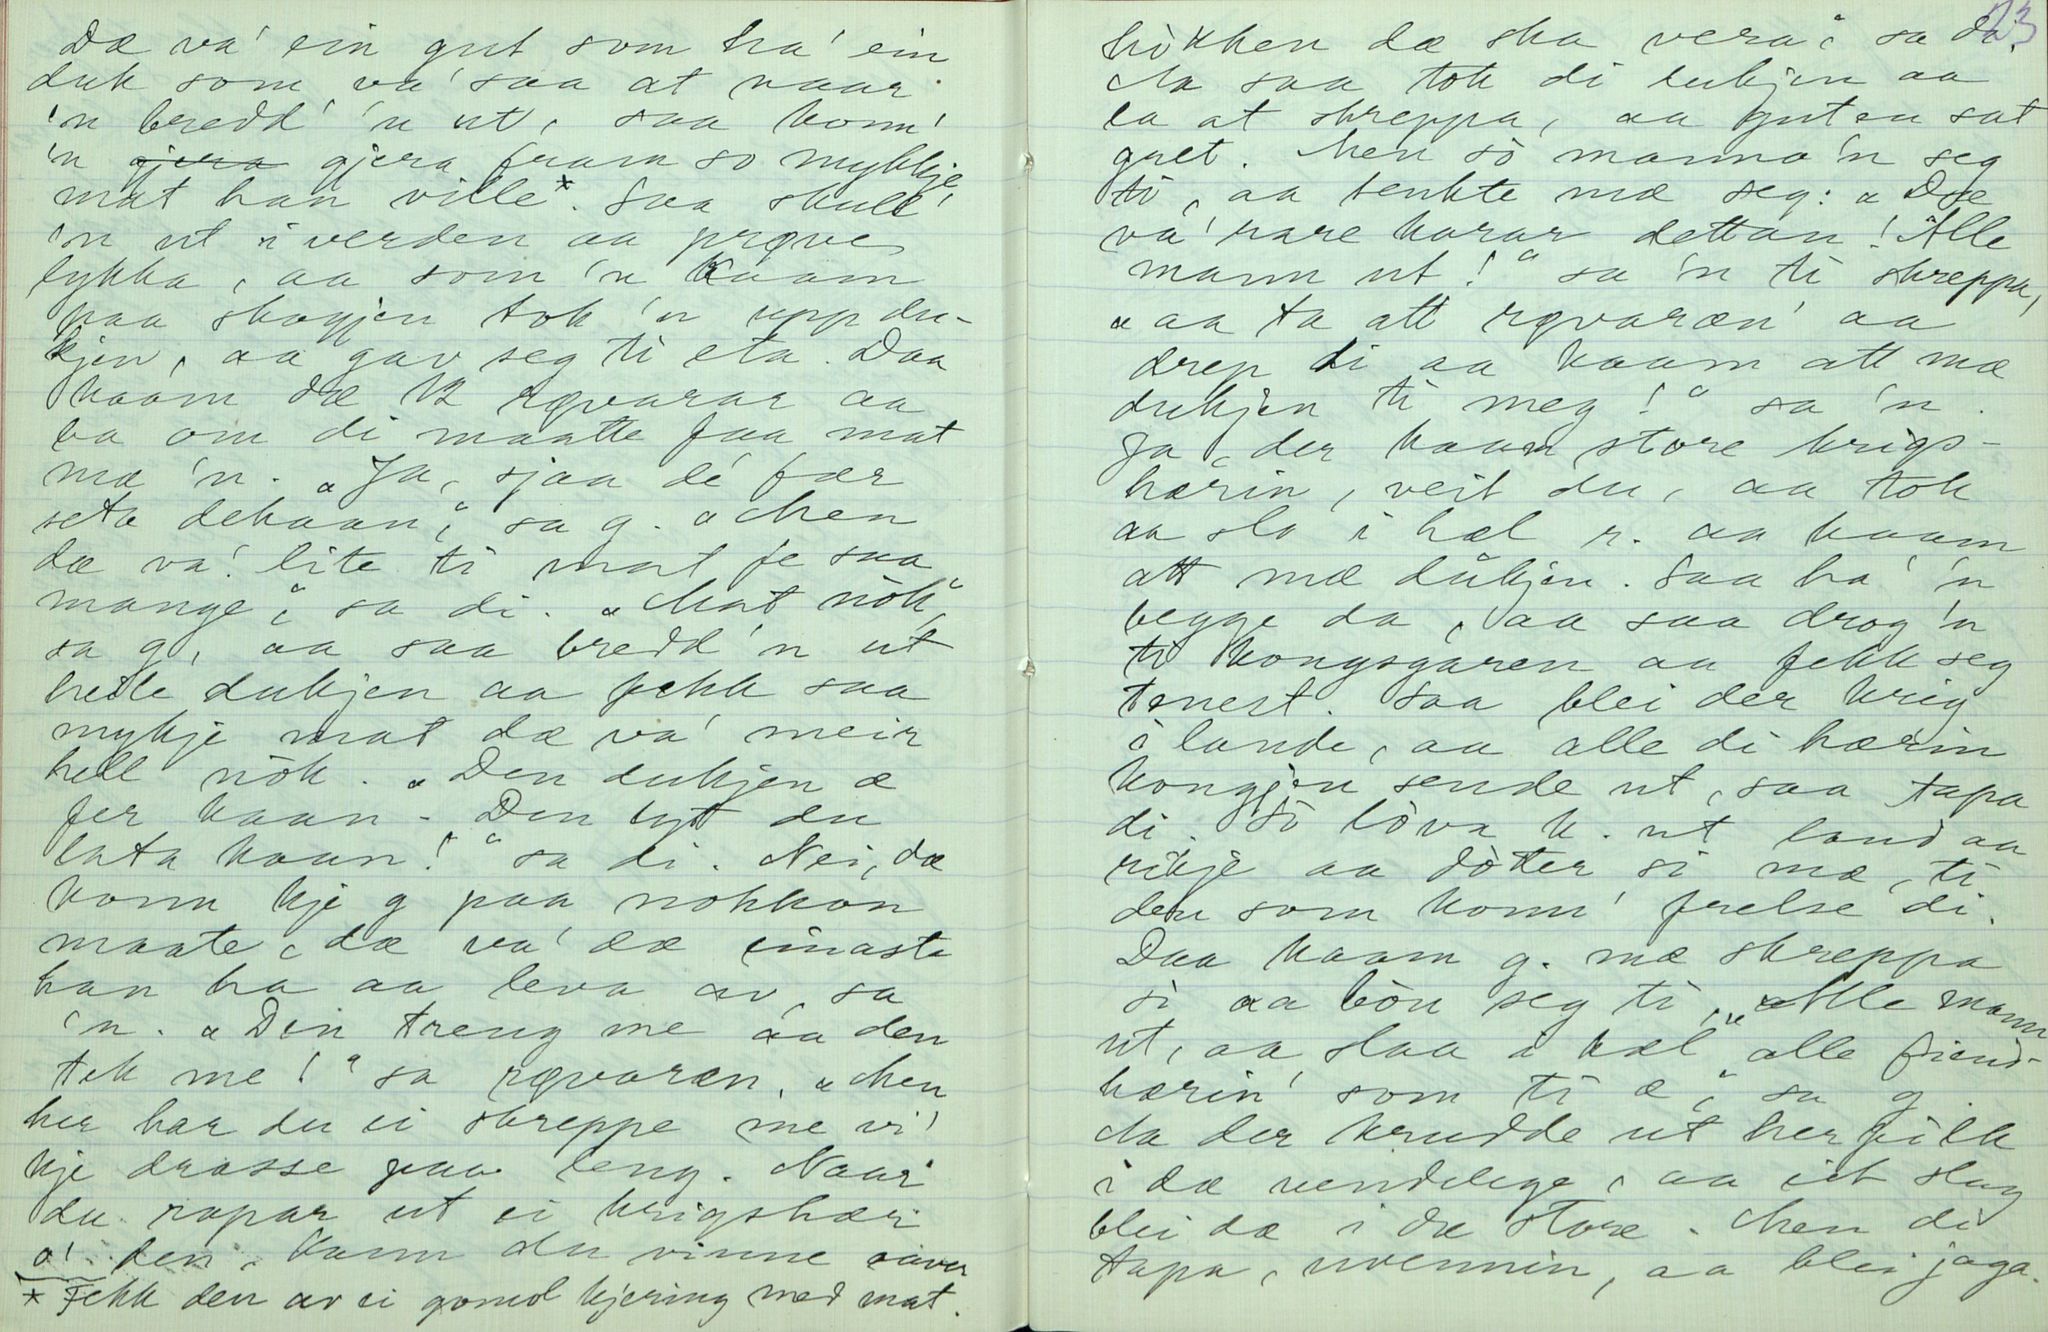 Dæ va' ein gut som ha' ein
duk som va' saa at naar
'n bredd' 'n ut, saa konn'
'n gjera gjera fram so mykkje
mat han ville*. Saa skull'
'n ut i verden aa prøve
lykka, aa som 'n kaam
paa skogjen tok 'n upp du-
kjen, aa gav seg ti eta. Daa
kaam dæ 12 røvarar aa
ba om di maatte faa mat
mæ 'n. „Ja, sjaa de' fær
seta dekaan," sa g. „Men
dæ va' lite ti mat fe saa
mange," sa di. „Mat nòk",
sa g, aa saa bredd 'n ut
heile dukjen aa fekk saa
mykje mat dæ va' meir
hell nòk. „Den dukjen æ
fer kaan - Den lyt du
lata kaan!" sa di. Nei, dæ
konn kje g paa nokkon
maate, dæ va' dæ einaste
han ha aa leva av, sa
'n. „Den treng me aa den
tek me!" sa røvaræn. „Men
her har du ei skreppe me vi'
kje drasse paa leng. Naar
du ropar ut ei krigshær
o' den, kann du vinne over
* Fekk den av ei gomol kjering med mat.
23
hòkken dæ ska vera," sa di.
Ja saa tok di dukjen aa
la at skreppa, aa guten sat
gret. Men sò manna 'n seg
ti, aa tenkte mæ seg: „Dæ
va' rare karar dettan! Alle
mann ut!" sa 'n ti skreppa,
„aa ta att røvaræn' aa
drep di aa kaam att mæ
dukjen ti meg!" sa 'n.
Ja, der kaam store krigs-
hærin, veit du, aa tok
aa slo i hæl r. aa kaam
att mæ dukjen. Saa ha' 'n
begge da, aa saa drog 'n
ti kongsgaren aa fekk seg
tenest. Saa blei der krig
i lande, aa alle di hærin
kongjen sende ut, saa tapa
di. Sò lòva k. ut land aa
rikje aa dòtter si mæ, ti
den som konn' frelse di.
Daa kaam g. mæ skreppa
si aa bòu seg ti. „Alle mann
ut, aa slaa i hæl alle fiend-
hærin' som ti æ," sa g.
Ja der krudde ut herfilk
i dæ uendelege, aa eit slag
blei dæ i dæ store. Men di
tapa, uvennin, aa blei jaga.